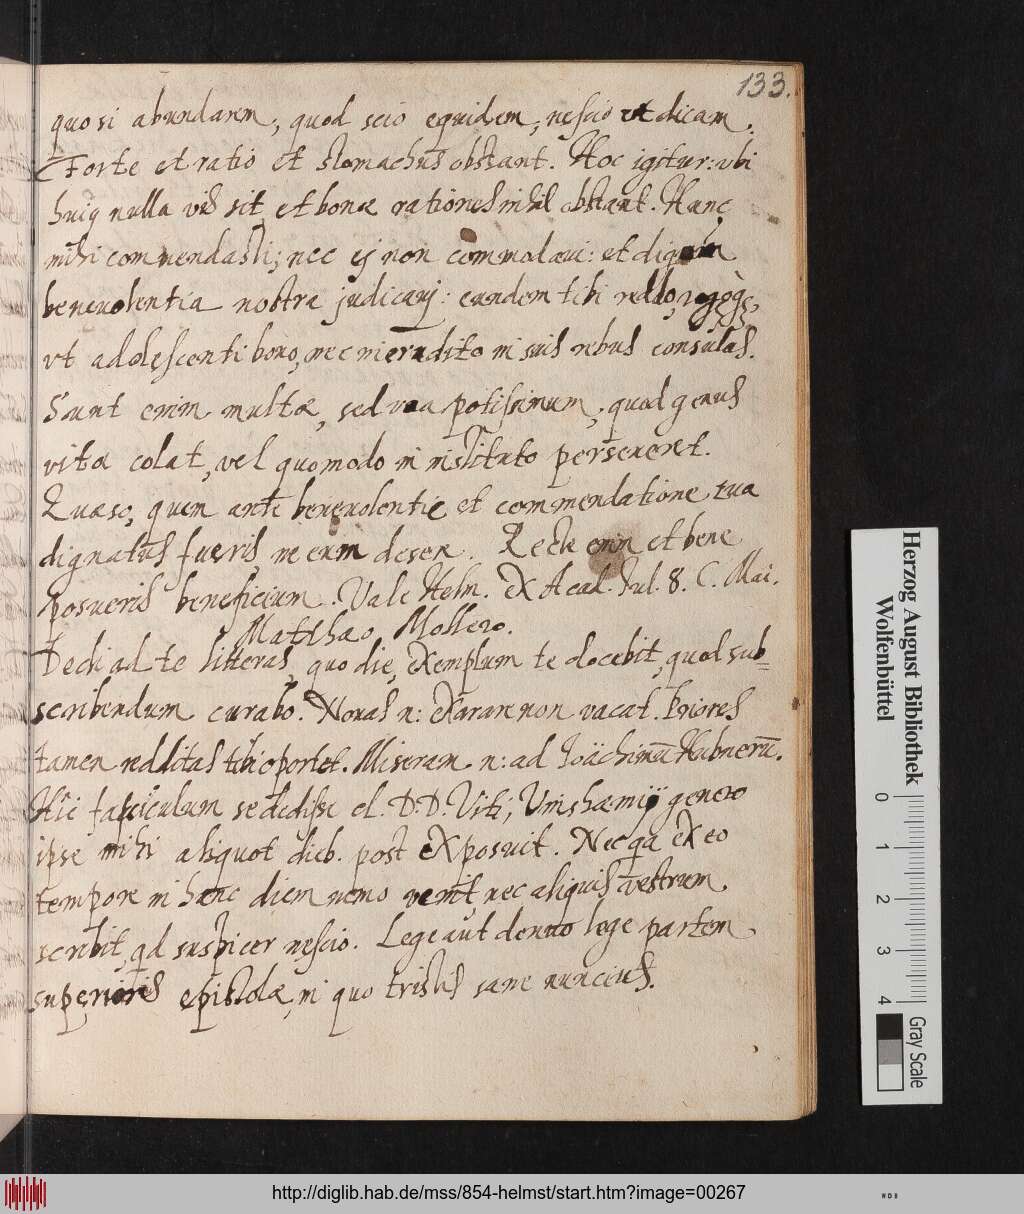 133.
quo si abundarem, quod scio equidem, nescio ut dicam.
Forte et ratio et stomachus obstant. Hoc igitur: ubi
huiq nulla vis sit, et bonæ rationes nihil obstant. Hunc
mihi commendasti; nec ej non commodavi: et dignum
benevolentia nostra judicavj: eundem tibi reddo,
vt adolescenti bono, nec inerudito in suis rebus consulas.
Sunt enim multæ, sed una potissimum, quod genus
vitæ colat, vel quomodo in instituto perseveret.
Quæso, quem ante benevolentiæ et commendatione tua
dignatus fueris, ne eum desere. Recte enim et bene
posueris beneficium. Vale Helm. Ex Acad. Jul. 8. C. Mai.
Matthæo Mollero.
Dedi ad te litteras, quo die, exemplum te docebit, quod sub=
scribendum curabo. Novas n: exarare non vacat. Priores
tamen redditas tibi oportet. Miseram n: ad Joachimū Hubnerū.
Hic fasciculum se dedisse cl. D. D. Viti, genero
ipse mihi aliquot dieb. post exposuit. Nec qa ex eo
tempore in hanc diem nemo venit nec aliquis vestrum
scribit, qd suspicer nescio. Lege aut denuo lege partem
superioris epistolæ, in quo tristis sane nuncius.
Herzog August Bibliothek
Wolfenbüttel
0 1 2 3 4
Gray Scale
http://diglib.hab.de/mss/854-helmst/start.htm?image=00267